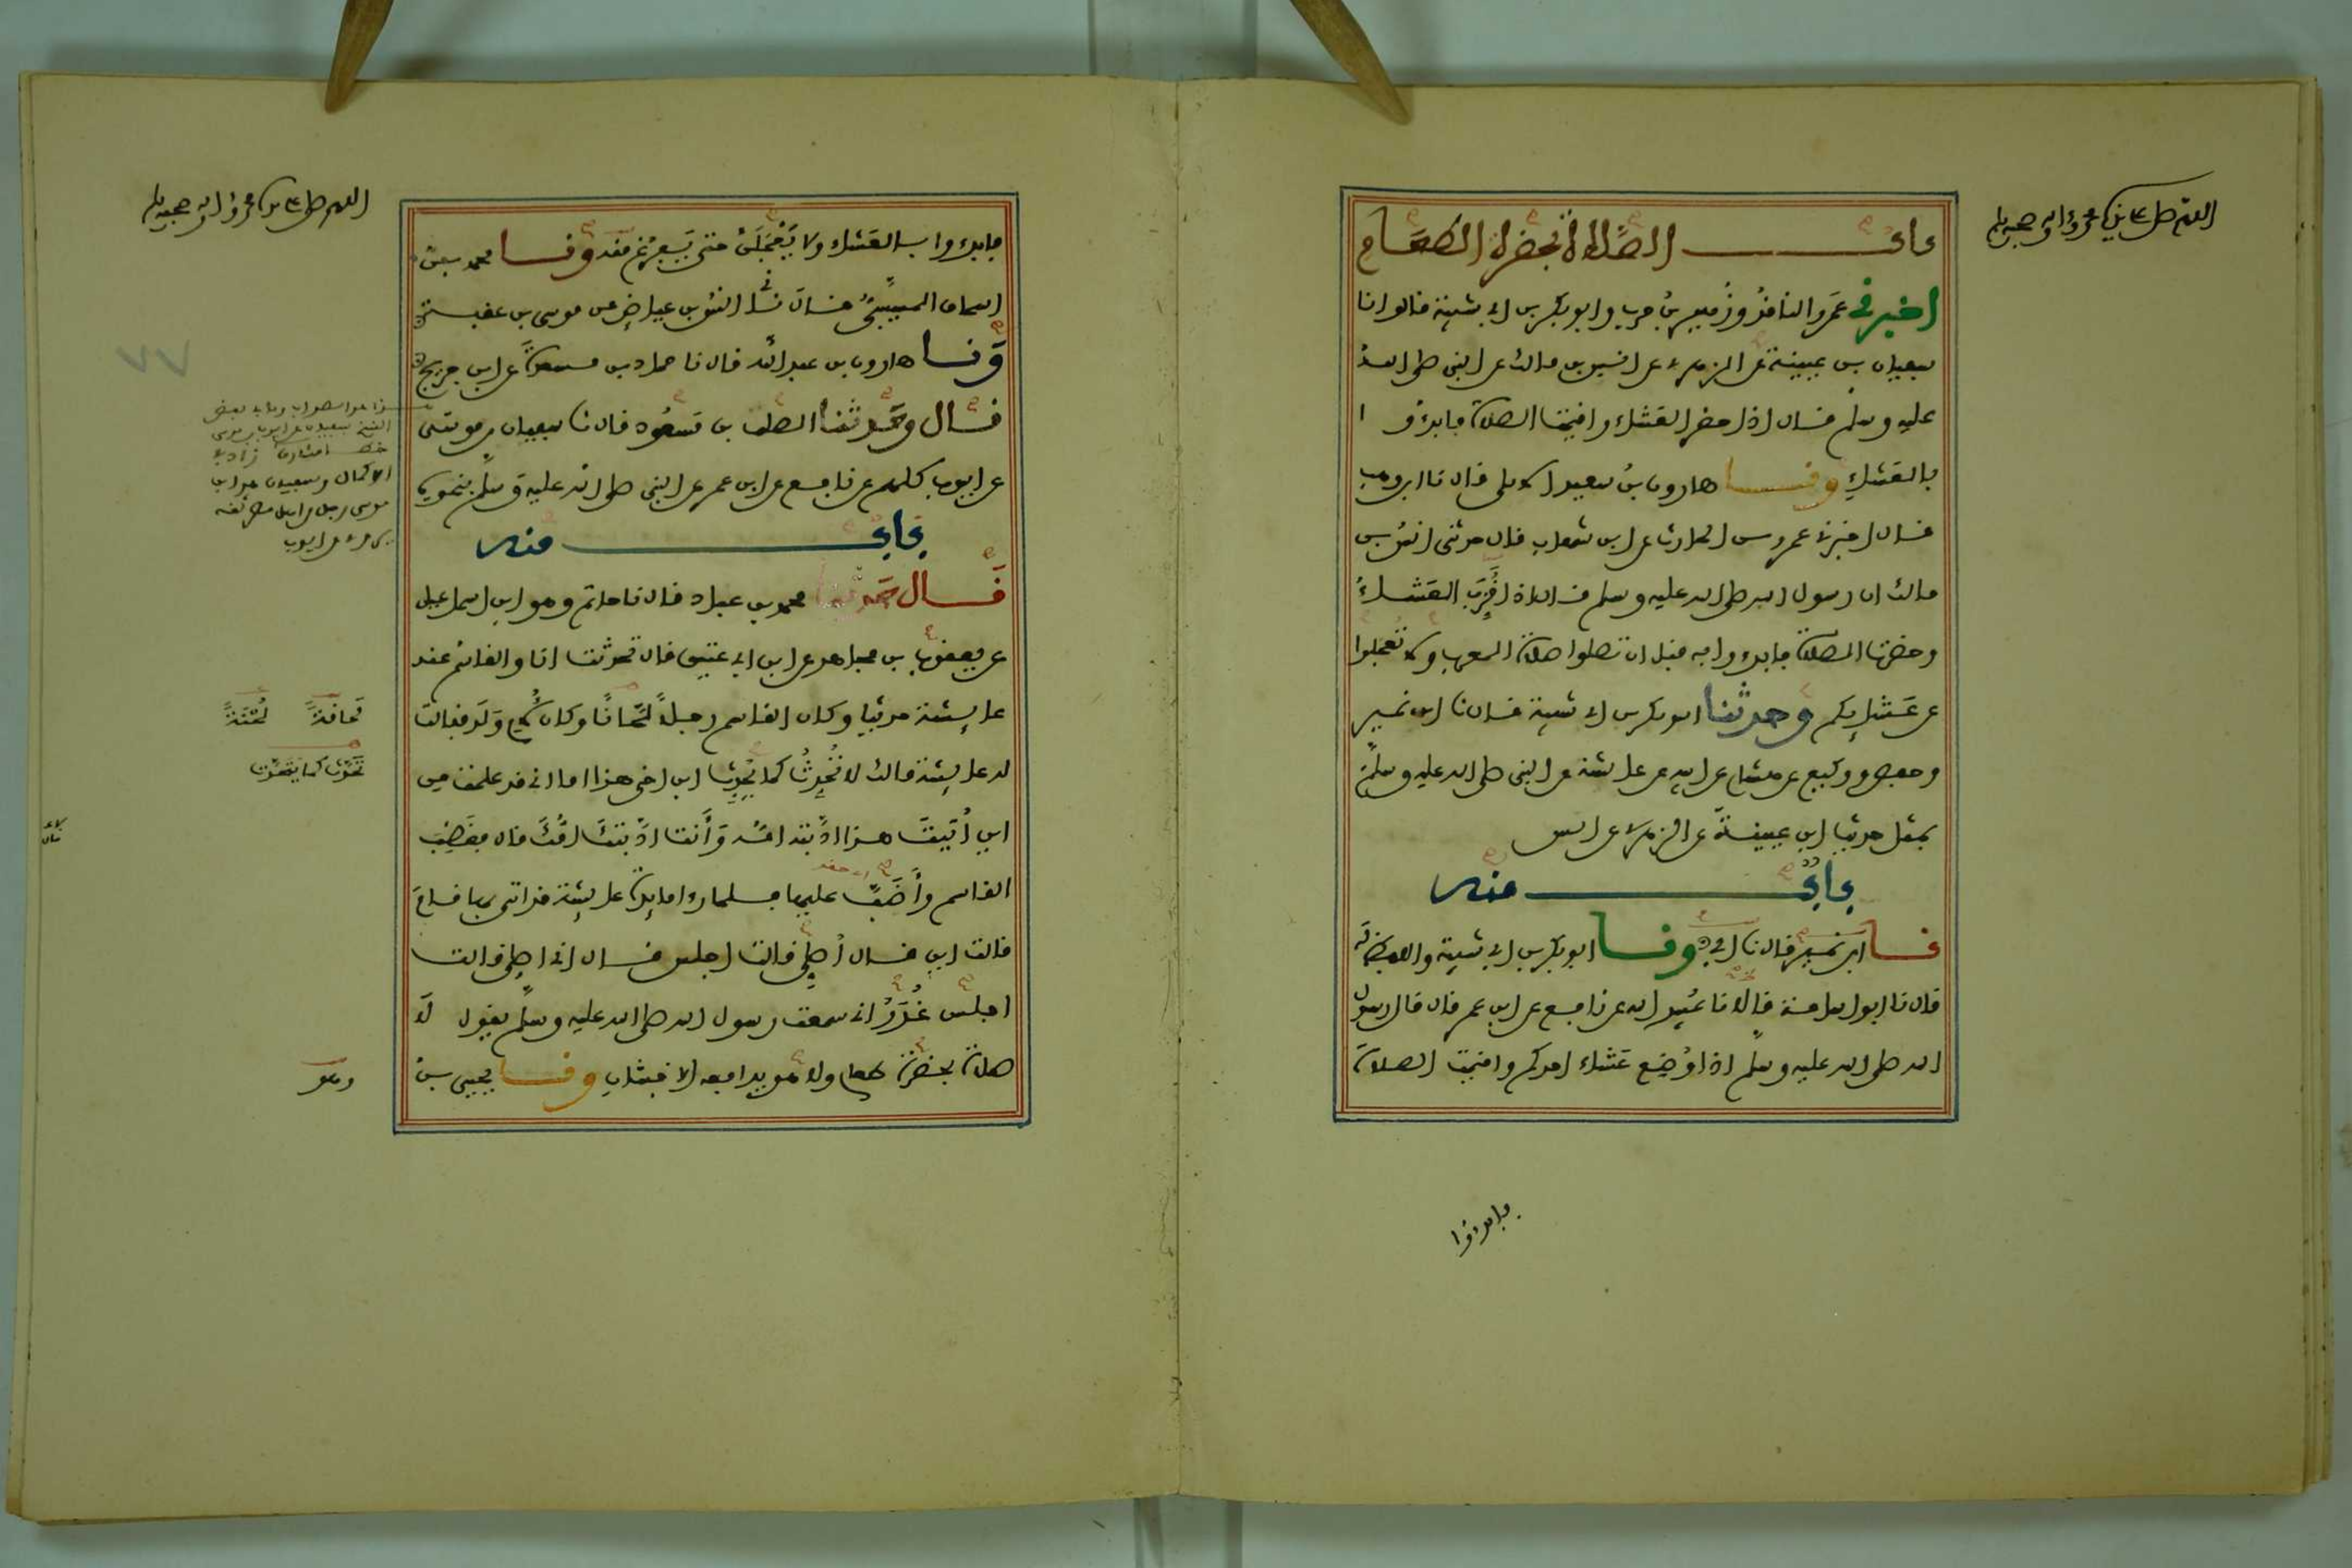 اللهم صل على سيدنا محمد وآله وصحبه وسلم
باب الصلاة بحضرة الطعام
اخبرني عمرو الناقد وزهير بن حرب وابو بكر بن ابي شيبة قالوا انا
سفيان بن عيينة عن الزهري عن انس بن مالك عن النبي صلى الله
عليه وسلم قال اذا حضر العشاء واقيمت الصلاة فابدءوا
بالعشاء ونا هارون بن سعيد الايلي قال نا ابن وهب
قال اخبرني عمرو بن الحارث عن ابن شهاب قال حدثني انس بن
مالك ان رسول الله صلى الله عليه وسلم قال اذا قُرِّبَ العَشاءُ
وحضرت الصلاة فابدءوا به قبل ان تصلوا صلاة المغرب ولا تعجلوا
عن عَشايكم وحدثنا ابو بكر بن ابي شيبة قال نا ابن نمير
وحفص ووكيع عن هشام عن ابيه عن عايشة عن النبي صلى الله عليه وسلم
بمثل حديث ابن عيينة عن الزهري عن انس
باب منه
نا ابن نمير قال نا ابي ح ونا ابو بكر بن ابي شيبة واللفظ له
قال نا ابو اسامة قالا نا عُبيد الله عن نافع عن ابن عمر قال قال رسول
الله صلى الله عليه وسلم اذا وُضِع عَشاء احدكم واقيمت الصلاة
فابدءوا
اللهم صل على سيدنا محمد وآله وصحبه وسلم
فابدءوا بالعَشاء ولا يَعْجَلَنَّ حتى يَفرُغ منه ونا محمد بن
اسحاق المسيَّبيُّ قال نا انس بن عياض عن موسى بن عقبة ح
ونا هارون بن عبد الله قال نا حماد بن مسعدة عن ابن جريج ح
قال وحدثنا الصلت بن مسعود قال نا سفيان بن موسى
عن ايوب كلهم عن نافع عن ابن عمر عن النبي صلى الله عليه وسلم بنحوه
باب منه
قال حدثنا محمد بن عباد قال نا حاتم وهو ابن اسماعيل
عن يعقوب بن مجاهد عن ابن ابي عتيق قال تحدثت انا والقاسم عند
عايشة حديثا وكان القاسم رجلاً لَحّانًا وكان لأم وَلَد فقالت
له عايشة مالك لا تُحَدِّثُ كما يُحَدِّث ابن اخي هذا اما اني قد علمت من
اين أُتيتَ هذا ادَّبته امّه وَأَنت ادَّبتكَ امُّكَ قال فغَضِبَ
القاسم وأَضَبَّ عليها فلما راى مايدة عايشة قد اتي بها قامَ
قالت اين قال أصلي قالت اجلس قال اني اصلي قالت
اجلس غُدَرُ اني سمعت رسول الله صلى الله عليه وسلم يقول لَا
صلاة بحضرة طعام ولا هو يدافعه الاخبثان ونا يحيى بن
٧٧
هذا هو الصواب
الاكمال وسفيان هو ابن
موسى رجل من اهل بصرة ثقة
يروي عن ايوب
لُحْنَةً